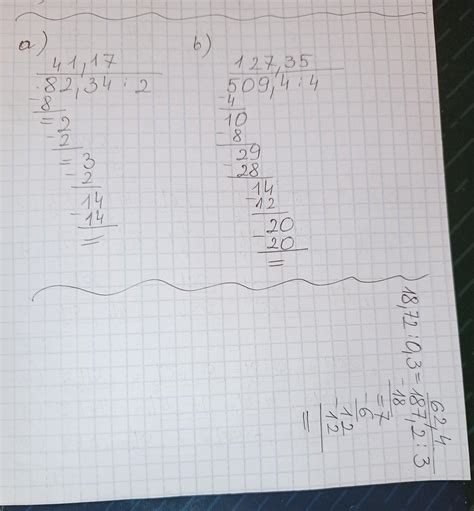 a)
41,17
82,34 : 2
-8
= 2
-2
= 3
-2
14
-14
=
b)
127,35
509,4 : 4
-4
10
-8
-29
28
14
-12
-20
20
=
62,4
18,72 : 0,3 = 187,2 : 3
-18
= 7
-6
12
-12
=